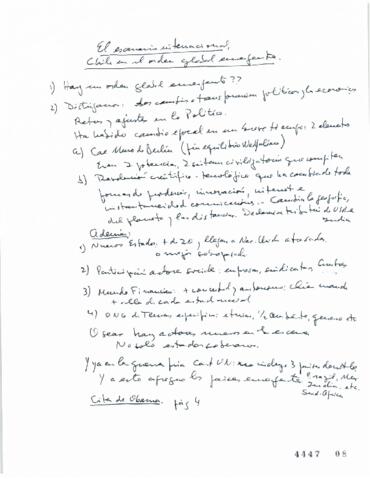 El escenario internacional,
Chile en el orden global emergente.
1) Hay un orden global emergente??
2) Distingamos: dos cambios o transformaciones políticos y la económica
Retos y ajustes en lo Político.
Ha habido cambio epocal en un breve tiempo: 2 elementos
a) Cae Muro de Berlín (fin equilibrio Westfalico)
Eran 2 potencias, 2 sistemas civilizatorios que competían
b) Revolución científico-tecnológica que ha cambiado toda
forma de producir, innovación, internet e
instantaneidad comunicaciones. Cambia la geografía
del planeta y las distancias. Declaraciones de
India
Además:
1) Nuevos Estados. + de 20 y llegan a Nac. Unid.
o mejor
2) Participación actores sociales: empresas, sindicatos,
3) Mundo Financiero: + conectado y autónomo:
+ allá de cada estado nacional
4) ONG de Temas específicos: etnias, 1/2 ambiente, género etc
O sea hay actores nuevos en la escena
No solo estados soberanos.
Y ya en la guerra fría 3 países
Y a esto agregar los países emergentes Brasil, Mex
India, etc.
Sud Africa
Cita de Obama. pág 4
4447 08